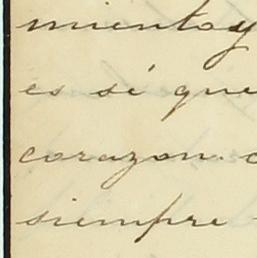 mientoy
es sé que
corazon. c
siempre